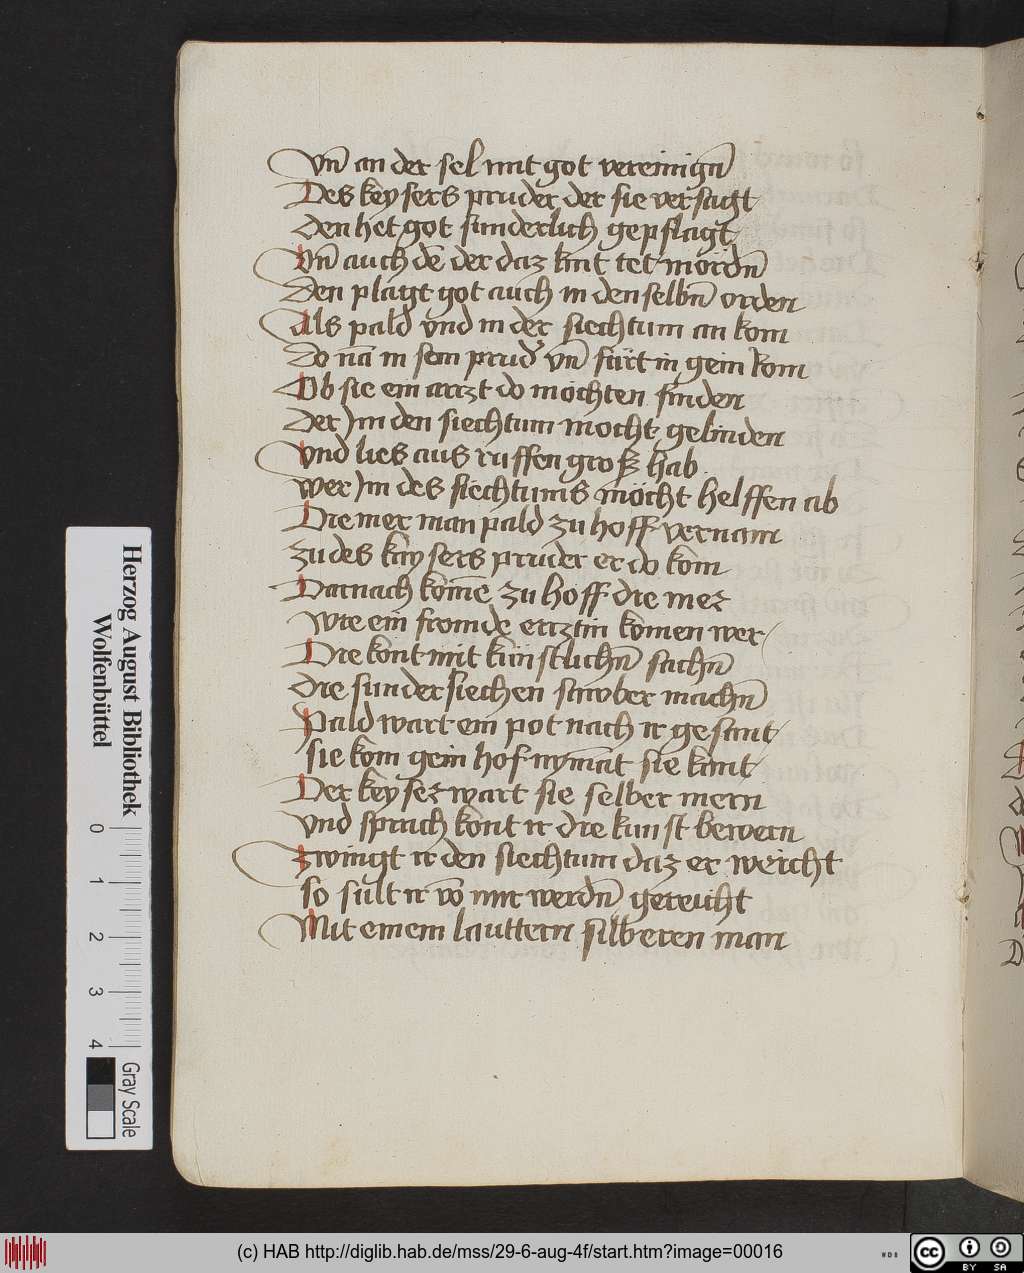 Vn̄ an der sel mit got vereinign̄
Des keysers pruder der sie versagt
den het got sunderlich gepflagt
Vn̄ auch dē der daz kint tet mördn̄
Den plagt got auch in denselbn̄ orden
Als pald vnd in der siechtum an kom
do nā in sein prud' vn̄ fürt in gein Rom
Ob sie ein arczt do möchten finden
Der Jm den siechtum mocht gelinden
Vnd lies aus ruffen groß hab
wer Jm des siechtums möcht helffen ab
Die mer man pald zu hoff vernam
zu des kaysers pruder er do kom
Darnach komē zu hoff die mer
wie ein fromde ercztin komen wer
Die kont mit künstlichn̄ sachn̄
die sundersiechen sawber machn̄
Pald wart ein pot nach ir gesant
sie kom gein hof nymāt sie kant
Der keyser wart sie selber mern
vnd sprach kont ir die kunst bewern
zwingt ir den siechtum daz er weicht
so sült ir vō mir werdn̄ gereicht
Mit einem lauttern silberen man
Herzog August Bibliothek
Wolfenbüttel
0 1 2 3 4
Gray Scale
(c) HAB http://diglib.hab.de/mss/29-6-aug-4f/start.htm?image=00016
WDB
cc BY SA